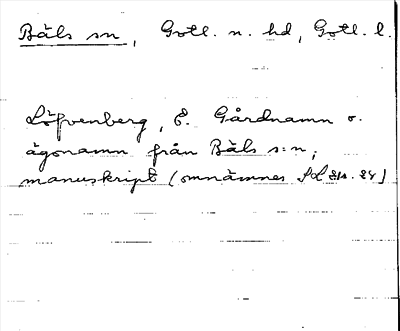 Bäls sn, Gotl. n. hd, Gotl. l.
Löfvenberg, E. Gårdnamn o.
ägonamn från Bäls s:n,
manuskript (omnämnes SL 24)